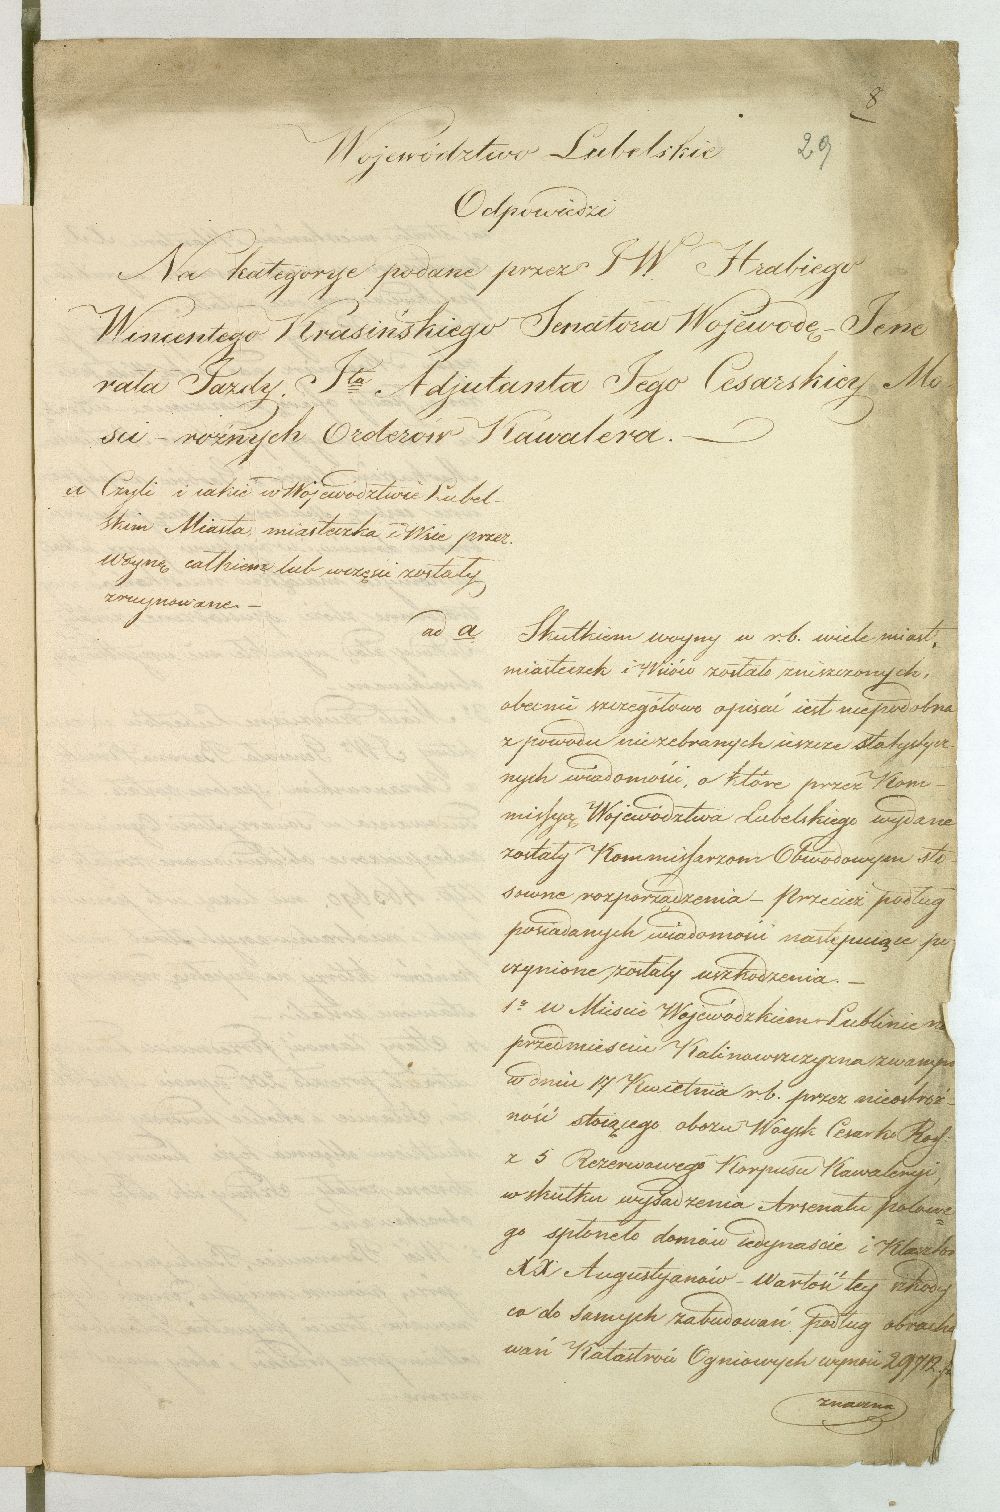 8
29
Województwo Lubelskie
Odpowiedzi
Na kategorye podane przez J W. Hrabiego
Wincentego Krasińskiego Senatora Wojewodę – Jene
rała Jazdy, Jta Adjutanta Jego Cesarskiey Mo
ści – rożnych Orderow Kawalera. —
a Czyli i iakie w Województwie Lubel-
skim Miasta, miasteczka i Wsie przez
woynę całkiem lub wczęści zostały
zruynowane. –
ad a
Skutkiem woyny w r.b. wiele miast,
miasteczek i Wsiów zostało zniszczonych,
obecnie szczegółowo opisać iest niepodobna
z powodu niezebranych ieszcze statystycz-
nych wiadomości, o które przez Kom-
missyą Województwa Lubelskiego wydane
zostały Kommissarzom Obwodowym sto-
sowne rozporządzenia – Przecież podług
posiadanych wiadomości następuiące po-
czynione zostały uszkodzenia. –
1o w Mieście Wojewódzkiem Lublinie na
przedmieściu Kalinowszczyzna zwanym
w dniu 17 Kwietnia r.b. przez nieostroż-
ność stoiącego obozu Woysk Cesar: Ross:
z 5 Rezerwowego Korpusu Kawaleryi,
w skutku wysadzenia Arsenału polowe-
go spłoneło domów iedynaście i Klasztor
XX Augustyanów – Wartość tey szkody
co do samych zabudowań podług obracho
wań Katastrów Ogniowych wynosi 29712
znaczna